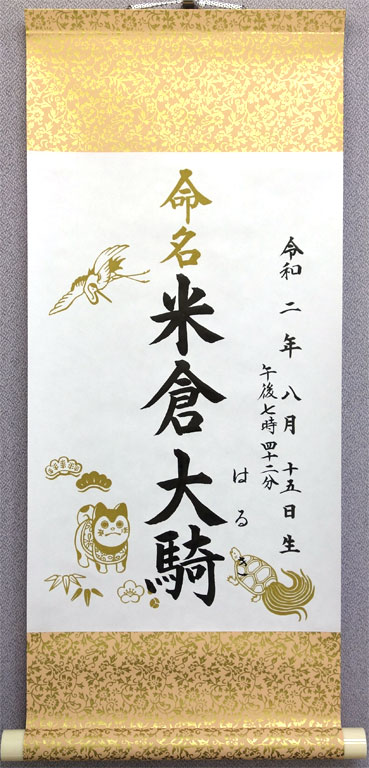 令和二年八月十五日生
午後七時四十二分
命名
米倉大騎
はるき